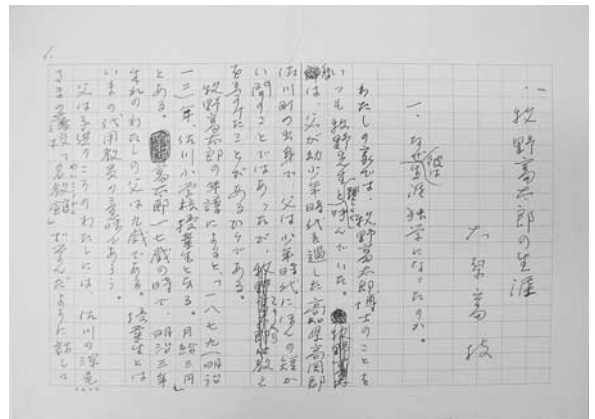 牧野富太郎の生涯
大原富枝
一、なぜ彼は生涯独学になったのか。
わたしの家では、牧野富太郎博士のことを
いつも牧野先生と呼んでいた。
は、父が幼少年時代を過した高知県高岡郡
佐川町の出身で、父は少年時代にほんの短か
い間のことではあったが、
を
ことがあるからである。
牧野富太郎の年譜によると、「一八七九(明治
一二)年、佐川小学校授業生となる。月給三円」
とある。富太郎一七歳の時で、明治三年
生れのわたしの父は九歳である。授業生とは
いまの代用教員の意味であろう。
父は子供のころのわたしには、佐川の深尾
さまの藩校「名教館」で学んだように話して